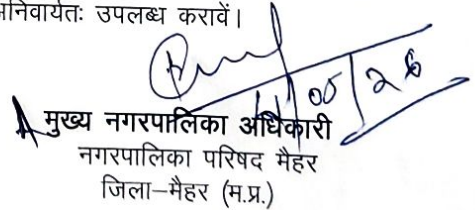 अनिवार्यतः उपलब्ध करावें।
/05/26
मुख्य नगरपालिका अधिकारी
नगरपालिका परिषद मैहर
जिला–मैहर (म.प्र.)